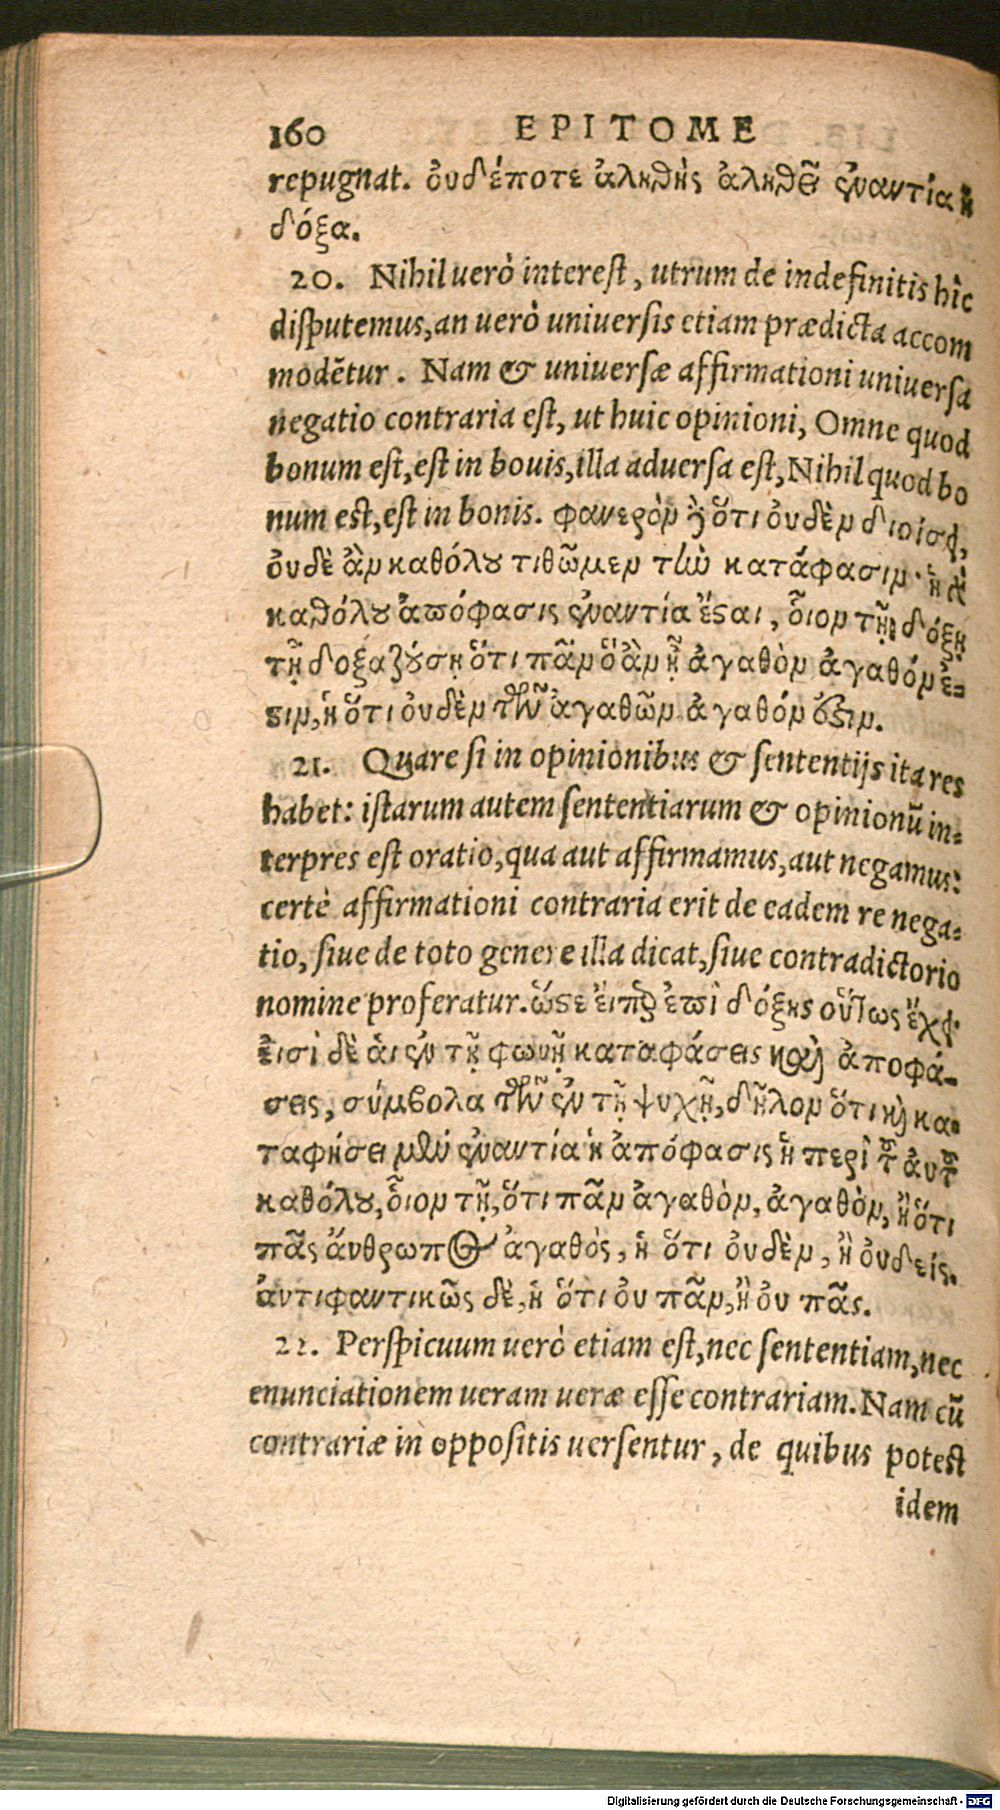 160 EPITOME
repugnat. οὐδέποτε ἀληθὴς ἀληθεῖ ἐναντία ἡ
δόξα.
20. Nihil uerò interest, utrum de indefinitis hîc
disputemus, an uerò uniuersis etiam prædicta accom
modẽtur. Nam & uniuersæ affirmationi uniuersa
negatio contraria est, ut huic opinioni, Omne quod
bonum est, est in bouis, illa aduersa est, Nihil quod bo
num est, est in bonis. φανερὸν ὅτι οὐδὲν διοίσει,
οὐδὲ ἂν καθόλου τιθῶμεν τὴν κατάφασιν· ἡ γὰρ
καθόλου ἀπόφασις ἐναντία ἔσται, οἷον τῇ δόξῃ
τῇ δοξαζούσῃ ὅτι πᾶν ὃ ἂν ᾖ ἀγαθὸν ἀγαθόν ἐ-
στιν, ἡ ὅτι οὐδὲν τῶν ἀγαθῶν ἀγαθόν ἐστιν.
21. Quare si in opinionibus & sententijs ita res
habet: istarum autem sententiarum & opinionũ in-
terpres est oratio, qua aut affirmamus, aut negamus:
certè affirmationi contraria erit de eadem re nega-
tio, siue de toto genere illa dicat, siue contradictorio
nomine proferatur. ὥστε εἴπερ ἐπὶ δόξης οὕτως ἔχει·
εἰσὶ δὲ αἱ ἐν τῇ φωνῇ καταφάσεις καὶ ἀποφά-
σεις, σύμβολα τῶν ἐν τῇ ψυχῇ, δῆλον ὅτι καὶ κα-
ταφήσει μὲν ἐναντία ἡ ἀπόφασις ἡ περὶ τοῦ αὐτοῦ
καθόλου, οἷον τῇ, ὅτι πᾶν ἀγαθὸν, ἀγαθὸν, ἢ ὅτι
πᾶς ἄνθρωπος ἀγαθὸς, ἡ ὅτι οὐδὲν, ἢ οὐδείς.
ἀντιφαντικῶς δὲ, ἡ ὅτι οὐ πᾶν, ἢ οὐ πᾶς.
22. Perspicuum uerò etiam est, nec sententiam, nec
enunciationem ueram ueræ esse contrariam. Nam cũ
contrariæ in oppositis uersentur, de quibus potest
idem
Digitalisierung gefördert durch die Deutsche Forschungsgemeinschaft - DFG